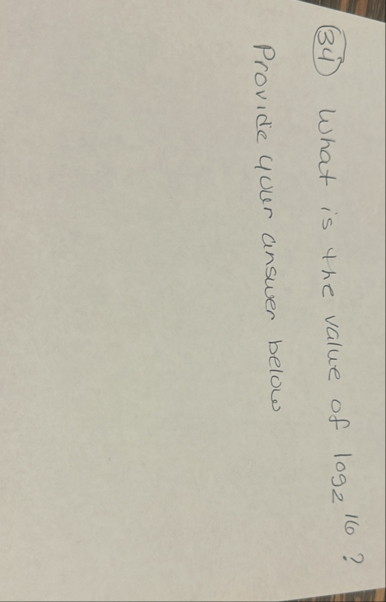 34 What is the value of log₂ 16 ?
Provide your answer below